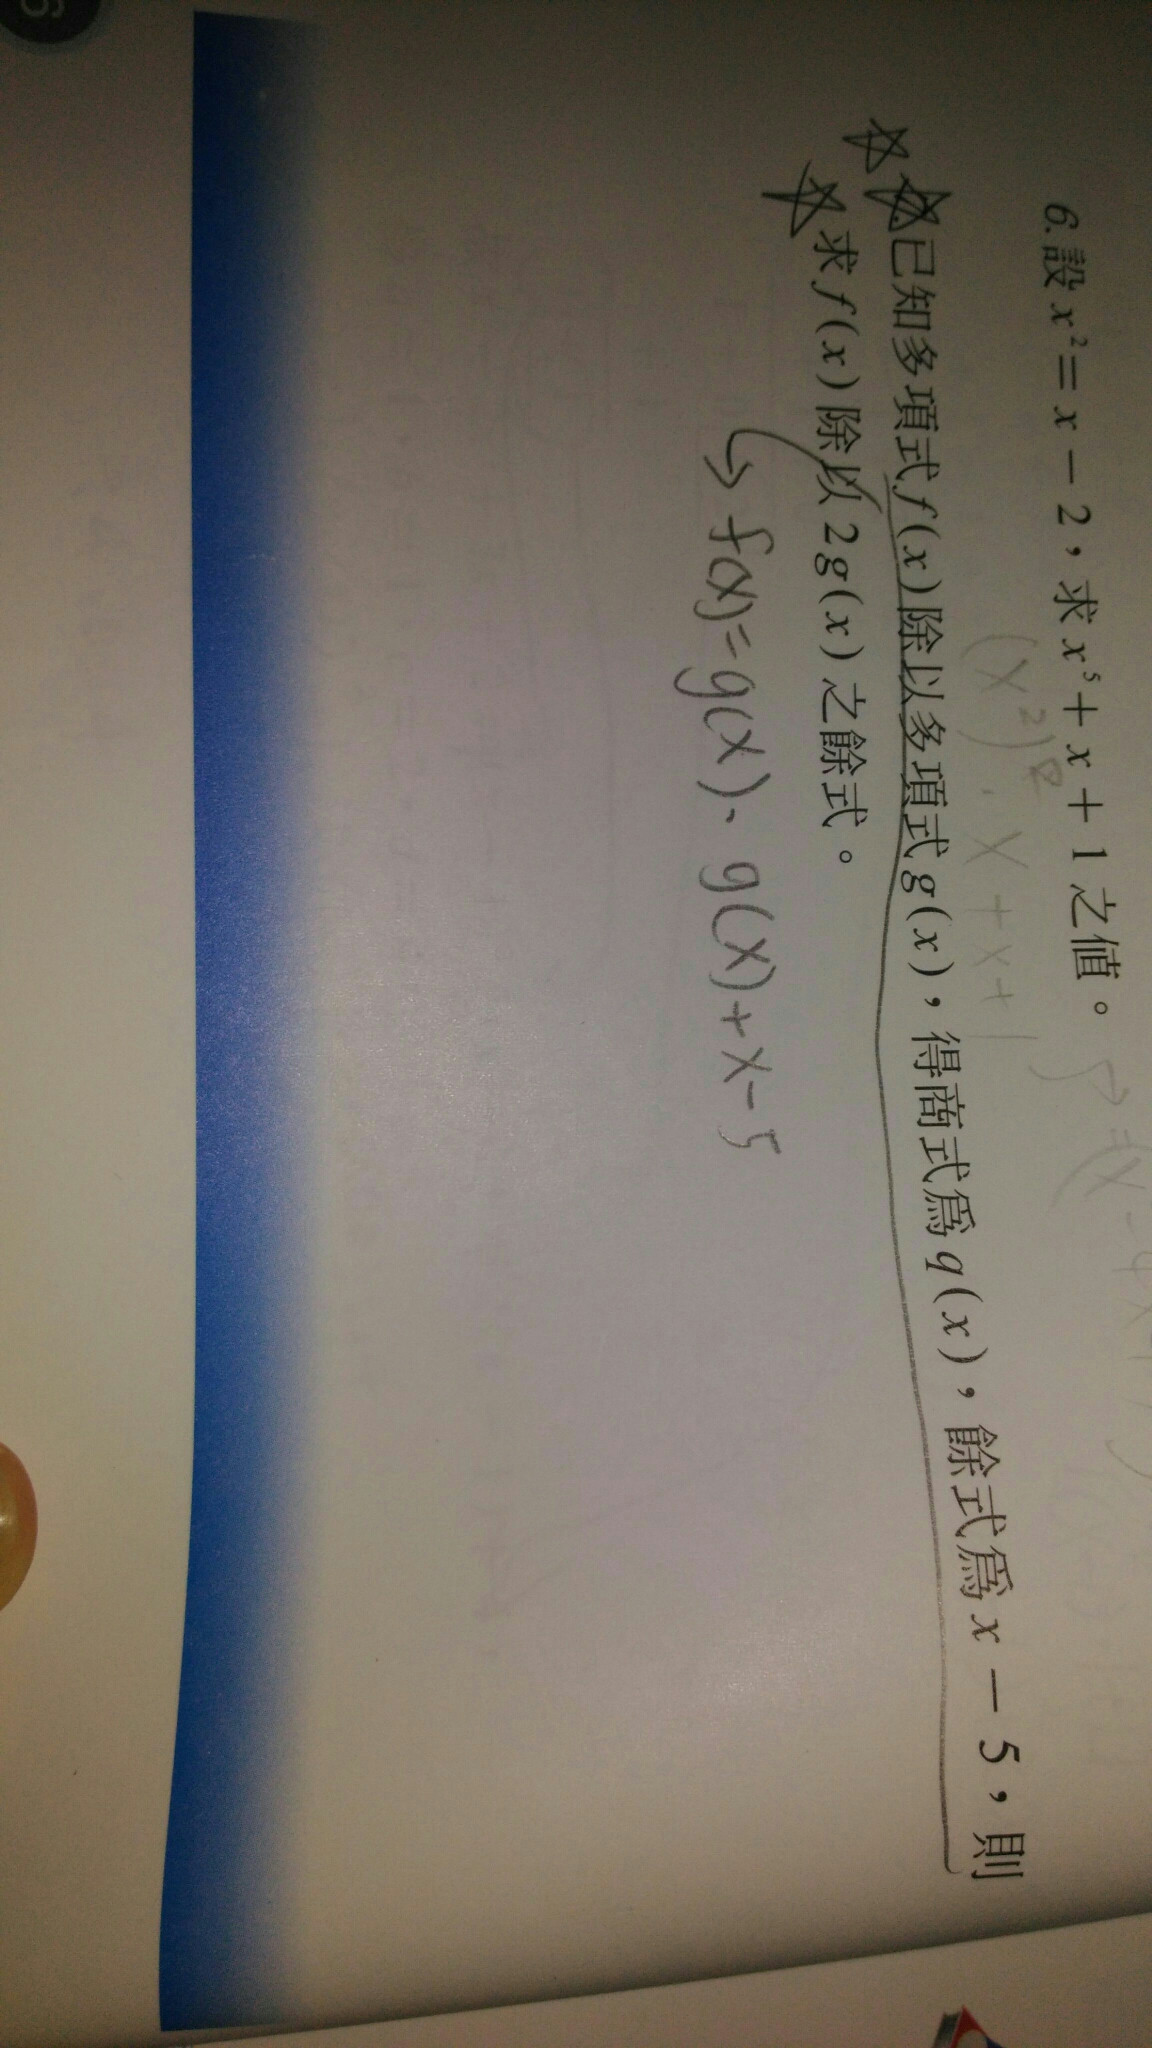 6.設x²=x-2,求x⁵+x+1之值。
(x²)² · x+x+1
已知多項式f(x)除以多項式g(x),得商式爲q(x),餘式爲x-5,則
求f(x)除以2g(x)之餘式。
↳ f(x)=g(x)、g(x)+x-5